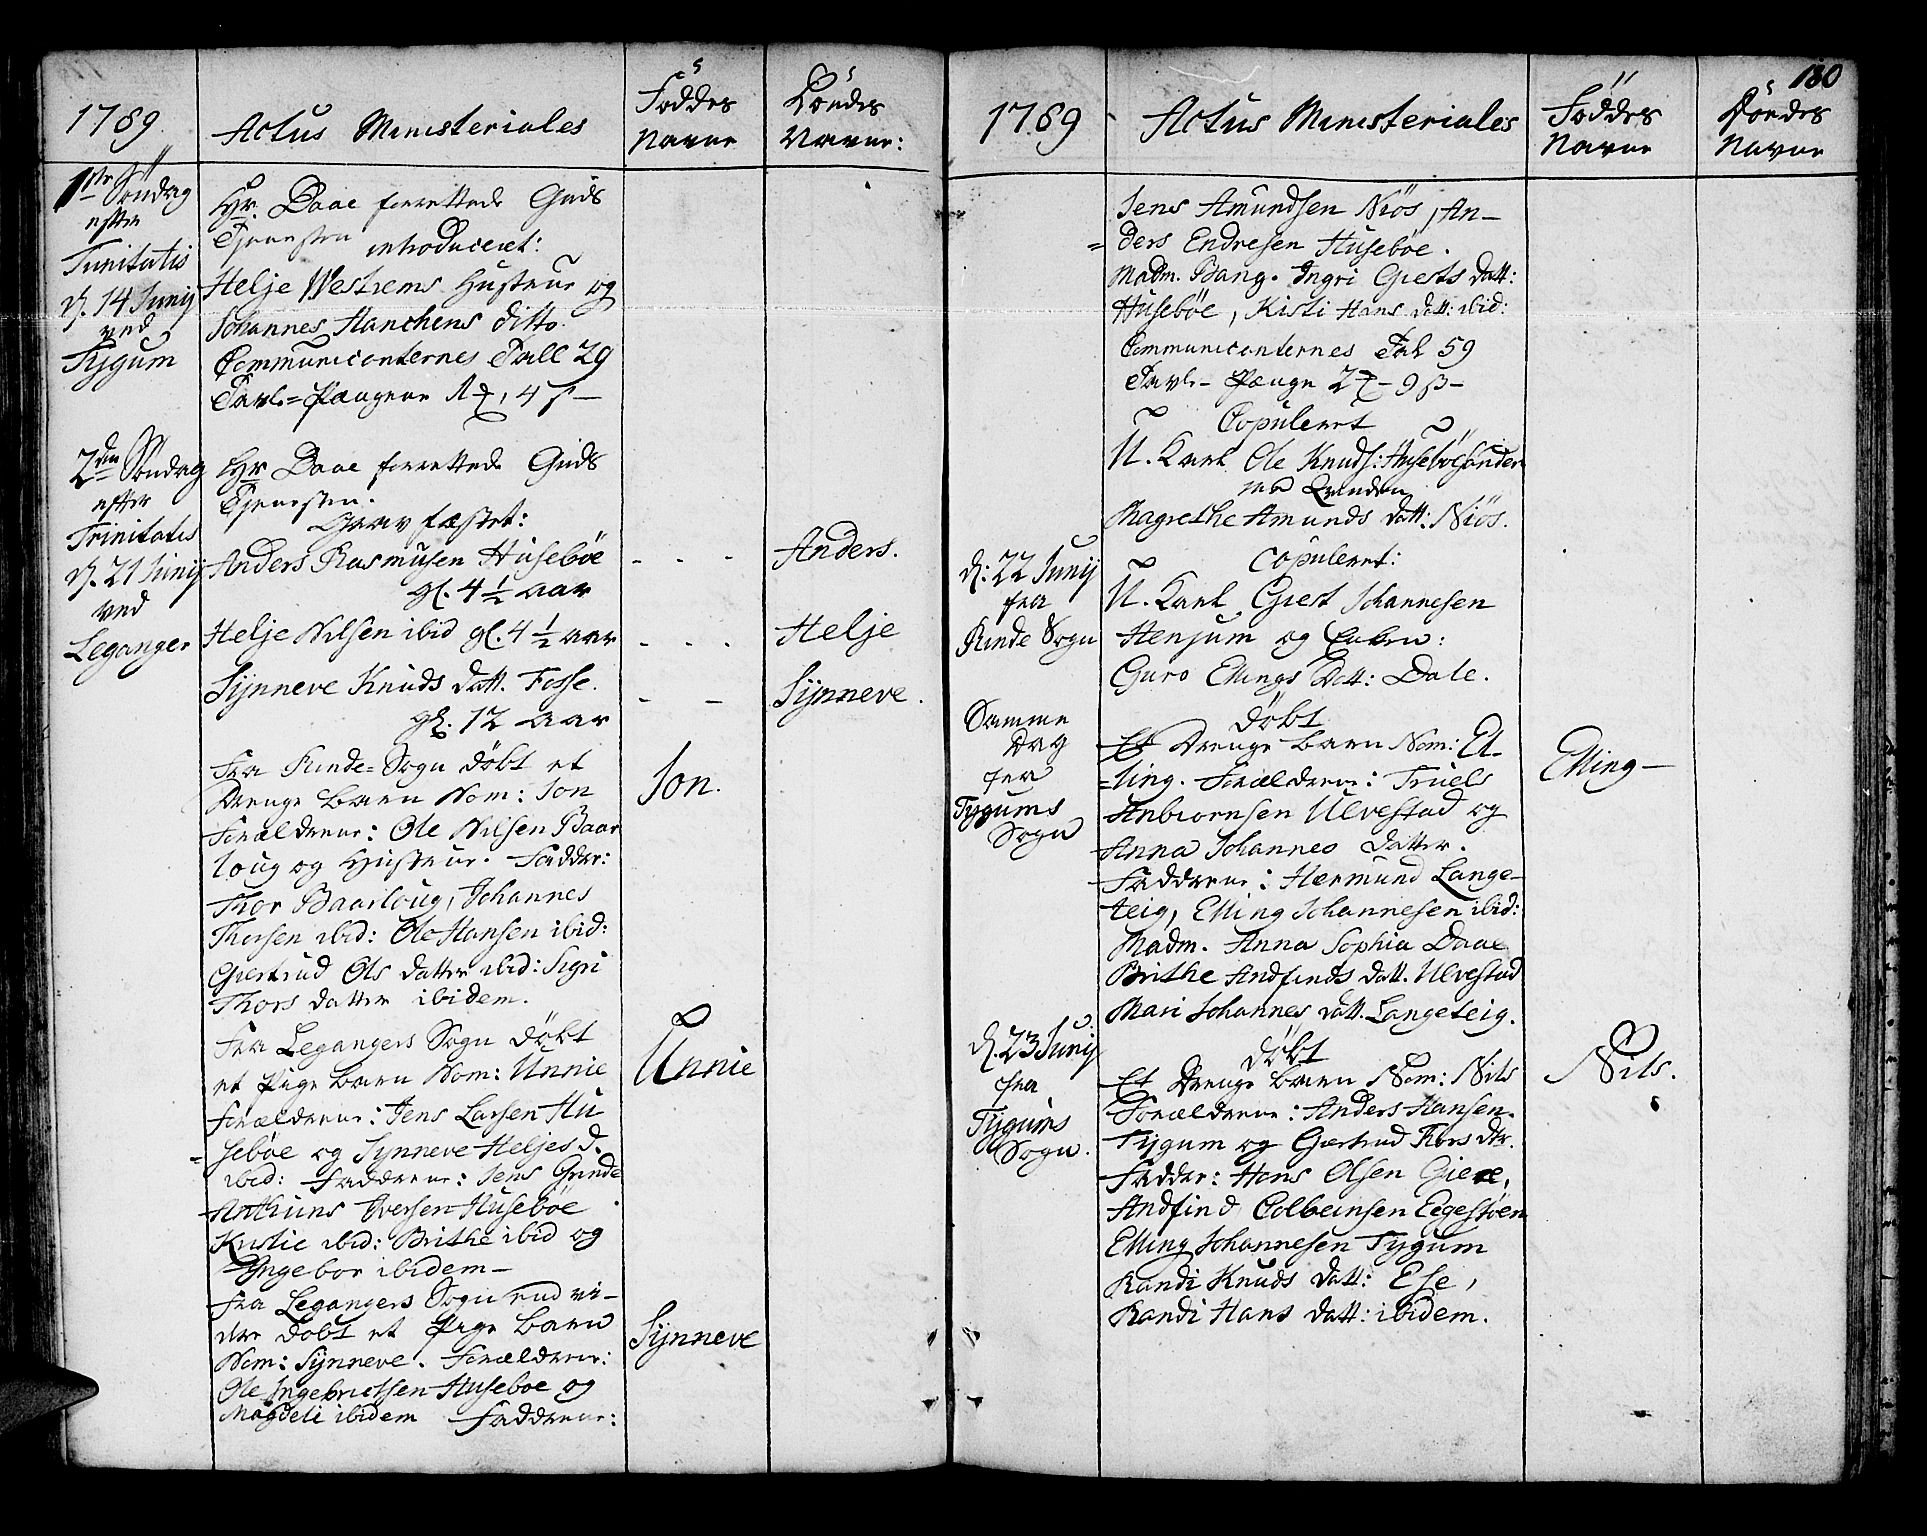 1789.
Actus Ministeriales
Föddes
Navne
Döedes
Navne:
1ste Söndag
efter
Trinitatis
d. 14 Junij
ved
Tygum
Hr. Daae forrettede Guds
Tjenesten introduceret:
Helje Westrems Hustrue og
Johannes Hanchens ditto.
Communicanternes Tall 29
Tavle=Pengene
2den Söndag
efter
Trinitatis
d. 21 Junij
ved
Leganger
Hr Daae forrettede Guds
Tjenesten.
Grav fæstet:
Anders Rasmusen Huseböe
gl. 4 1/2 Aar
Anders.
Helje Nilsen ibid gl. 4 1/2 Aar
Helje
Synneve Knuds Datt. Fosse.
gl. 12 Aar
Synneve.
Fra Rinde=Sogn döbt et
Drenge Barn Nom: Jon
Forældrene: Ole Nilsen Baar
loug og Hustrue. Fadder:
Thor Baarloug, Johannes
Thorsen ibid: Ole Hansen ibid:
Giertrud Ols Datter ibid: Sigri
Thors Datter ibidem.
Jon.
Fra Legangers Sogn döbt
et Pige Barn Nom: Unnie
Forældrene: Jens Larsen Hu
=seböe og Synneve Heljes D.
ibid: Faddrene: Jens Grinde
Anthuns Iversen Huseböe
Kristie ibid: Brithe ibid og
Yngebor ibidem-
Unnie
Fra Legangers Sogn end vi-
dere döbt et Pige Barn
Nom: Synneve. Forældrene:
Ole Ingebrictsen Huseboe og
Magdeli ibidem Faddrene:
Synneve
180
1789
Actus Ministeriales
Föddes
Navne
Döedes
Navne
Jens Amundsen Niös, An-
=ders Endresen Huseböe.
Madm. Bang. Ingri Gierts Datt:
Huseböe, Kisti Hans Datt: ibid:
Communicanternes Tal 59
Tavle- Penge
Copuleret
U. Karl Ole Knuds: Huseböesanden
med Qvinden
Magrethe Amunds Datt: Niös.
d: 22 Junij
fra
Rinde Sogn
Copuleret:
U. Karl Giert Johannesen
Henjum og Enken:
Guro Ellings Datt: Dale.
Samme
Dag
fra
Tygums
Sogn
döbt
Et Drenge Barn Nom: El-
=ling. Forældrene: Truels
Anbiornsen Ulvestad og
Anna Johannes Datter.
Faddrene: Hermund Lange-
teig, Elling Johannesen ibid:
Madm. Anna Sophia Daae
Brithe Andfinds Datt. Ulvestad
Mari Johannes Datt. Langeteig.
Elling-
d. 23 Junij
fra
Tygums
Sogn.
döbt
Et Drenge Barn Nom: Nils
Forældrene: Anders Hansen
Tygum og Giertrud Thors Dtr.
Fadder: Hans Olsen Giere,
Andfind Colbeinsen Eegestöen
Elling Johannesen Tygum
Randi Knuds Datt: Ese,
Randi Hans Datt: ibidem.
Nils.